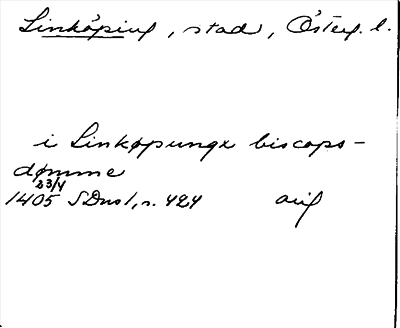 Linköping, stad, Österg. l.
i Linkøpunge biscops-
dømme
23/4
1405 SDns 1, s. 424 orig